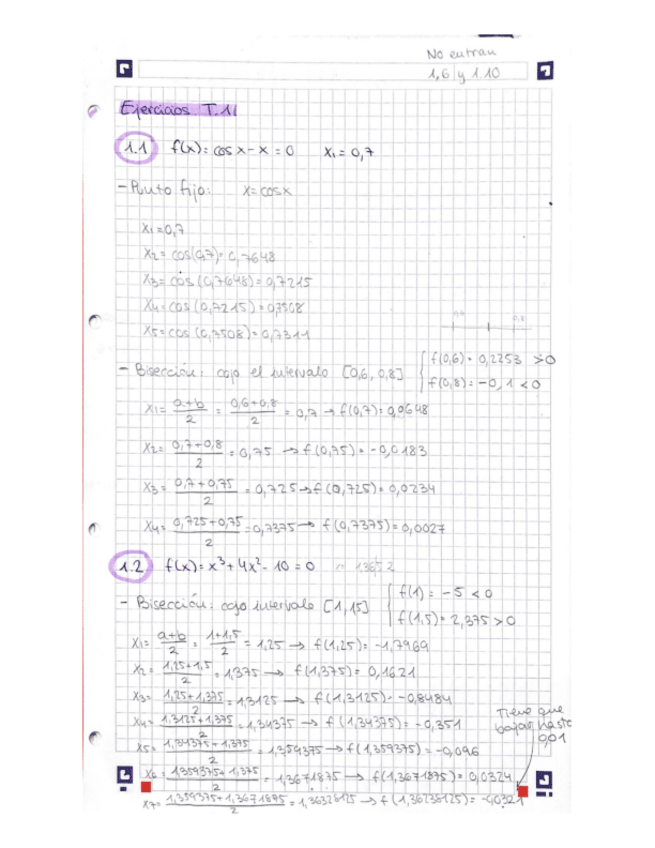 No entran
1,6 y 1.10
Ejercicios T.1
1.1 f(x) = cos x - x = 0 x₁ = 0,7
- Punto fijo: x = cosx
x₁ = 0,7
x₂ = cos(0,7) = 0,7648
x₃ = cos(0,7648) = 0,7215
x₄ = cos(0,7215) = 0,7508
x₅ = cos(0,7508) = 0,7311
0,6 0,8
- Bisección: cojo el intervalo [0,6, 0,8] { f(0,6) = 0,2253 > 0
f(0,8) = -0,1 < 0
x₁ = a+b/2 = 0,6+0,8/2 = 0,7 → f(0,7) = 0,0648
x₂ = 0,7+0,8/2 = 0,75 → f(0,75) = -0,0183
x₃ = 0,7+0,75/2 = 0,725 → f(0,725) = 0,0234
x₄ = 0,725+0,75/2 = 0,7375 → f(0,7375) = 0,0027
1.2 f(x) = x³ + 4x² - 10 = 0 ~ 1,3652
- Bisección: cojo intervalo [1, 1,5] { f(1) = -5 < 0
f(1,5) = 2,375 > 0
x₁ = a+b/2 = 1+1,5/2 = 1,25 → f(1,25) = -1,7969
x₂ = 1,25+1,5/2 = 1,375 → f(1,375) = 0,1621
x₃ = 1,25+1,375/2 = 1,3125 → f(1,3125) = -0,8484
x₄ = 1,3125+1,375/2 = 1,34375 → f(1,34375) = -0,351
x₅ = 1,34375+1,375/2 = 1,359375 → f(1,359375) = -0,096
x₆ = 1,359375+1,375/2 = 1,3671875 → f(1,3671875) = 0,0324
x₇ = 1,359375+1,3671875/2 = 1,36328125 → f(1,36238125) = -0,0321
Tiene que
bajar hasta
0,01